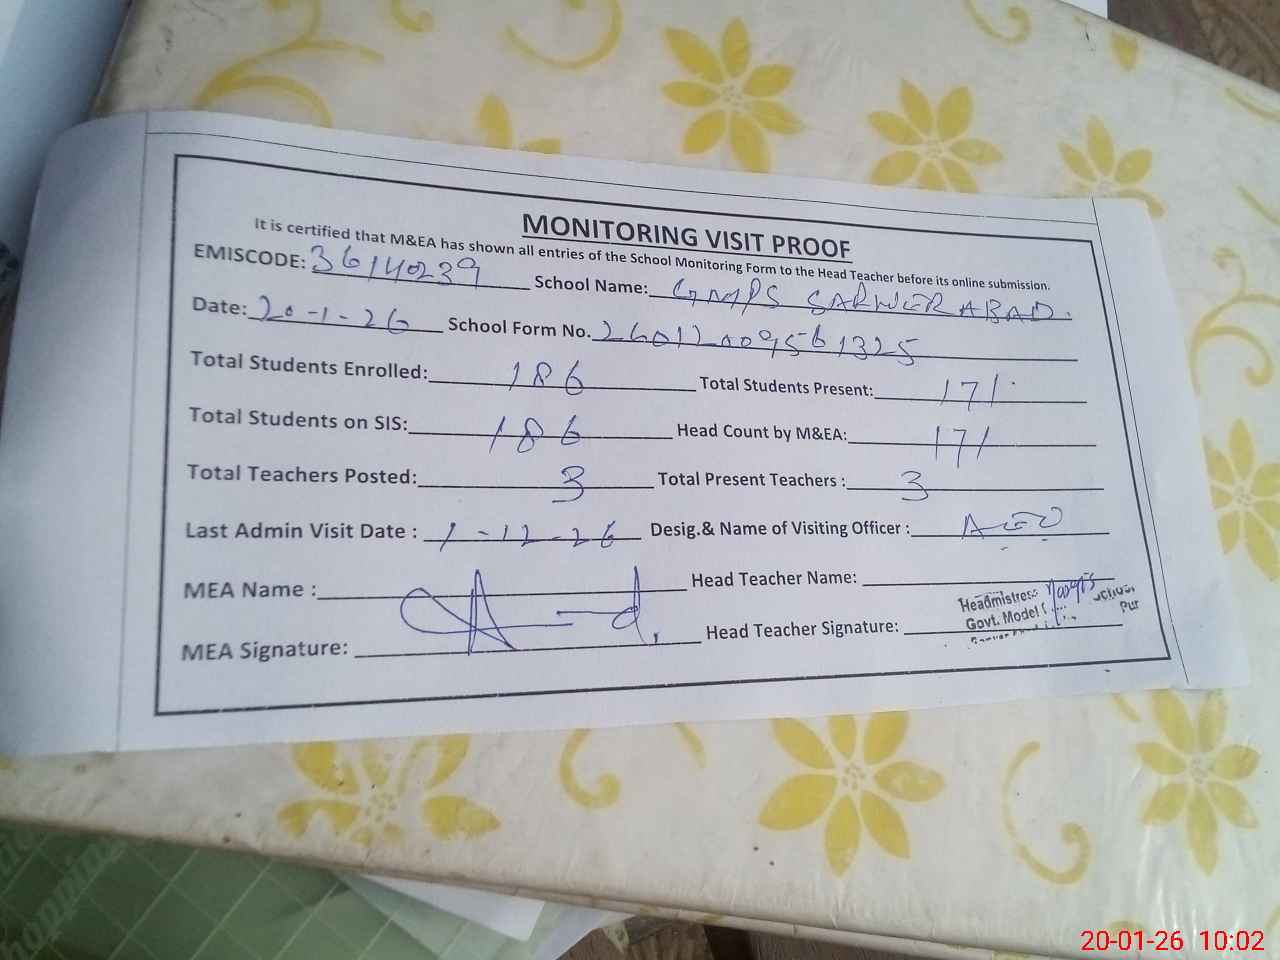 MONITORING VISIT PROOF
It is certified that M&EA has shown all entries of the School Monitoring Form to the Head Teacher before its online submission.
EMISCODE: 36140239 School Name: GMPS SARWER ABAD.
Date: 20-1-26 School Form No. 26012009561325
Total Students Enrolled: 186 Total Students Present: 171
Total Students on SIS: 186 Head Count by M&EA: 171
Total Teachers Posted: 3 Total Present Teachers : 3
Last Admin Visit Date : 1-12-26 Desig.& Name of Visiting Officer : AEO
MEA Name : Head Teacher Name:
Headmistress
Govt. Model School
Pur
MEA Signature: Head Teacher Signature:
hopping
20-01-26 10:02